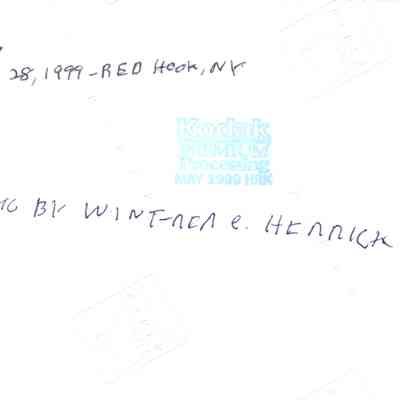 28, 1999 - RED HOOK, NY
Kodak
PREMIUM
Processing
MAY 1999 HRK
BY WINTHER C. HERRICK